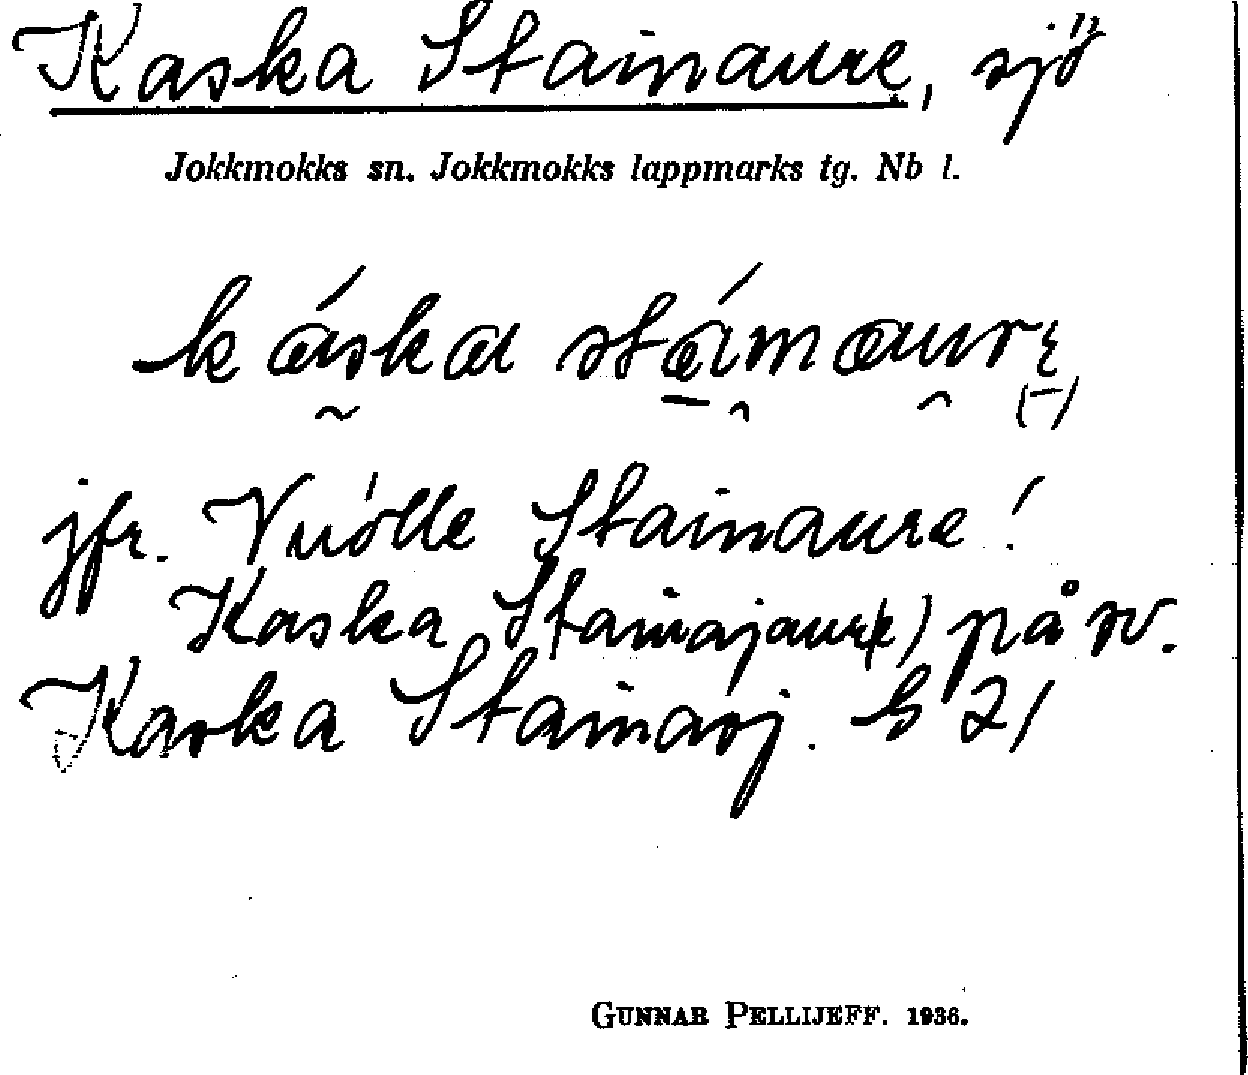 Kaska Stainaure, sjö
Jokkmokks sn. Jokkmokks lappmarks tg. Nb l.
káska
jfr. Vuólle Stainaure!
Kaska Stainajaur(e) på sv.
Kaska Stainasj. G 21
GUNNAR PELLIJEFF. 1936.